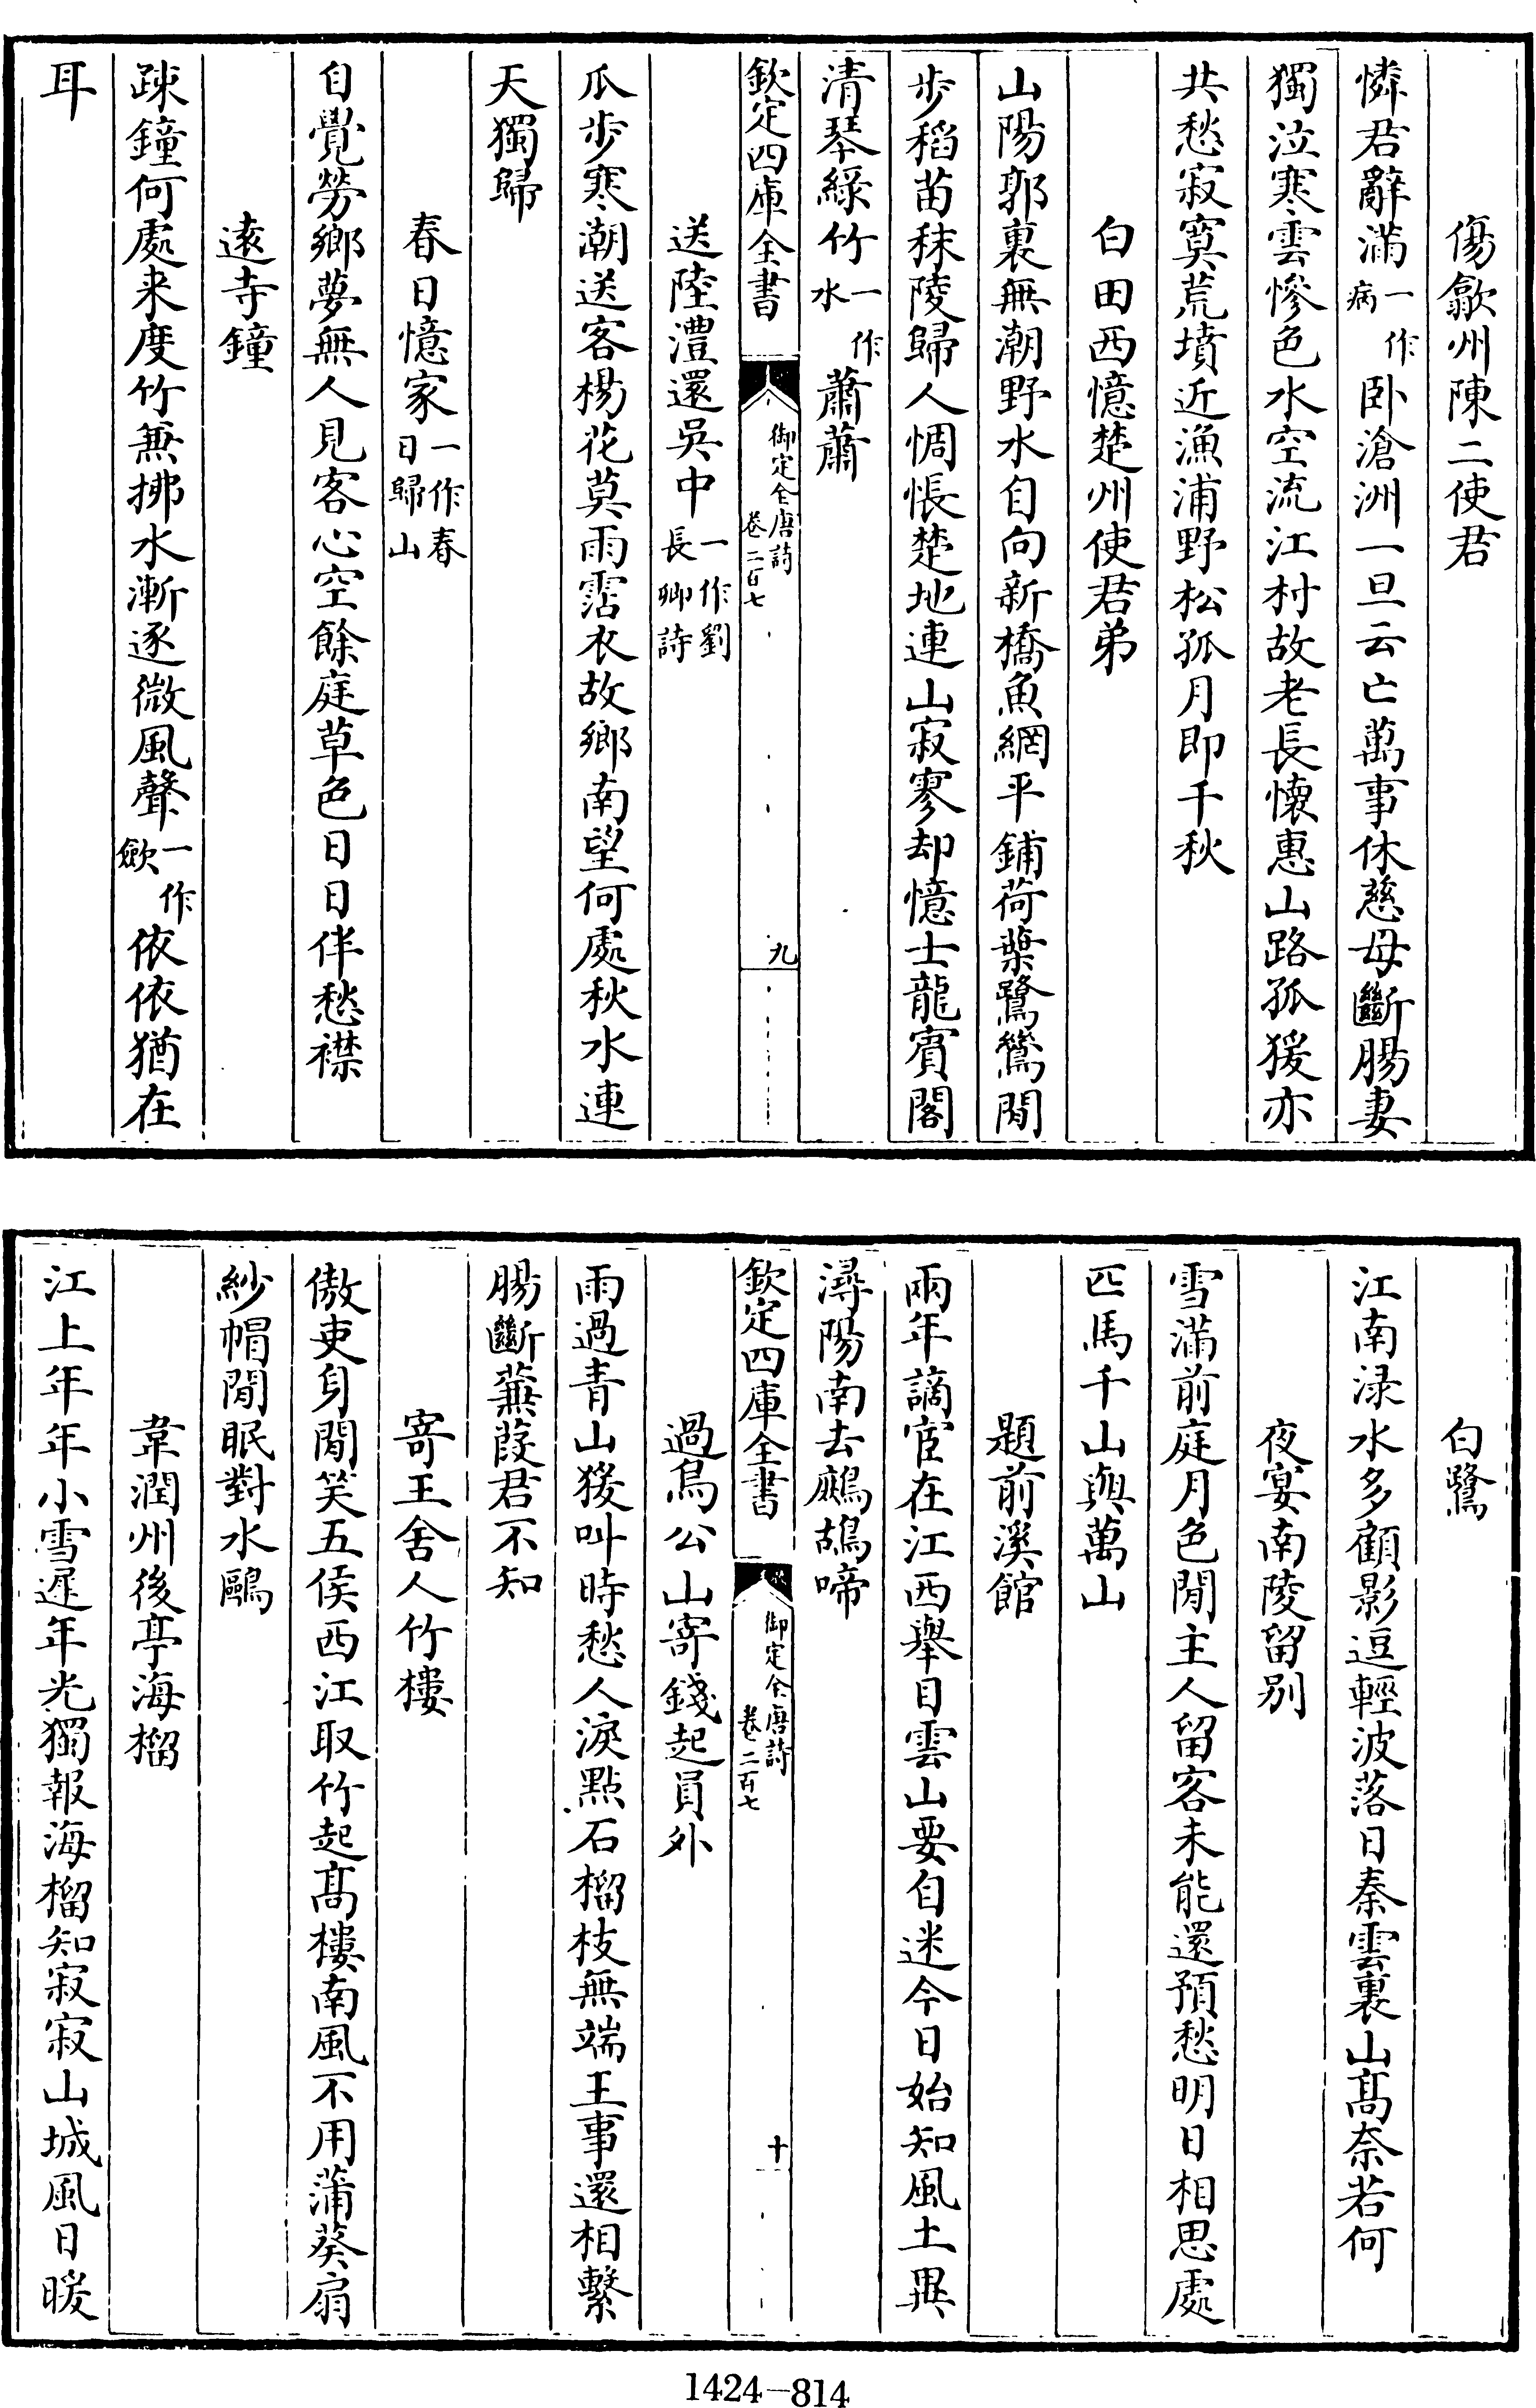 傷歙州陳二使君
憐君辭滿一作病卧滄洲一旦云亡萬事休慈母斷腸妻
獨泣寒雲慘色水空流江村故老長懷惠山路孤猨亦
共愁寂寞荒墳近漁浦野松孤月即千秋
白田西憶楚州使君弟
山陽郭裏無潮野水自向新橋魚網平鋪荷葉鷺鷥閒
步稻苗秣陵歸人惆悵楚地連山寂寥却憶士龍賓閣
清琴綠竹一作水蕭蕭
欽定四庫全書 御定全唐詩 卷二百七 九
送陸澧還吳中一作劉長卿詩
瓜步寒潮送客楊花莫雨霑衣故鄉南望何處秋水連
天獨歸
春日憶家一作春日歸山
自覺勞鄉夢無人見客心空餘庭草色日日伴愁襟
遠寺鐘
疎鐘何處来度竹兼拂水漸逐微風聲一作歛依依猶在
耳
白鷺
江南渌水多顧影逗輕波落日秦雲裏山髙奈若何
夜宴南陵留別
雪滿前庭月色閒主人留客未能還預愁明日相思處
匹馬千山與萬山
題前溪館
兩年謫宦在江西舉目雲山要自迷今日始知風土異
潯陽南去鷓鴣啼
欽定四庫全書 御定全唐詩 卷二百七 十
過烏公山寄錢起員外
雨過青山猨叫時愁人淚點石榴枝無端王事還相繫
腸斷蒹葭君不知
寄王舍人竹樓
傲吏身閒笑五侯西江取竹起髙樓南風不用蒲葵扇
紗帽閒眠對水鷗
韋潤州後亭海榴
江上年年小雪遲年光獨報海榴知寂寂山城風日暖
1424-814